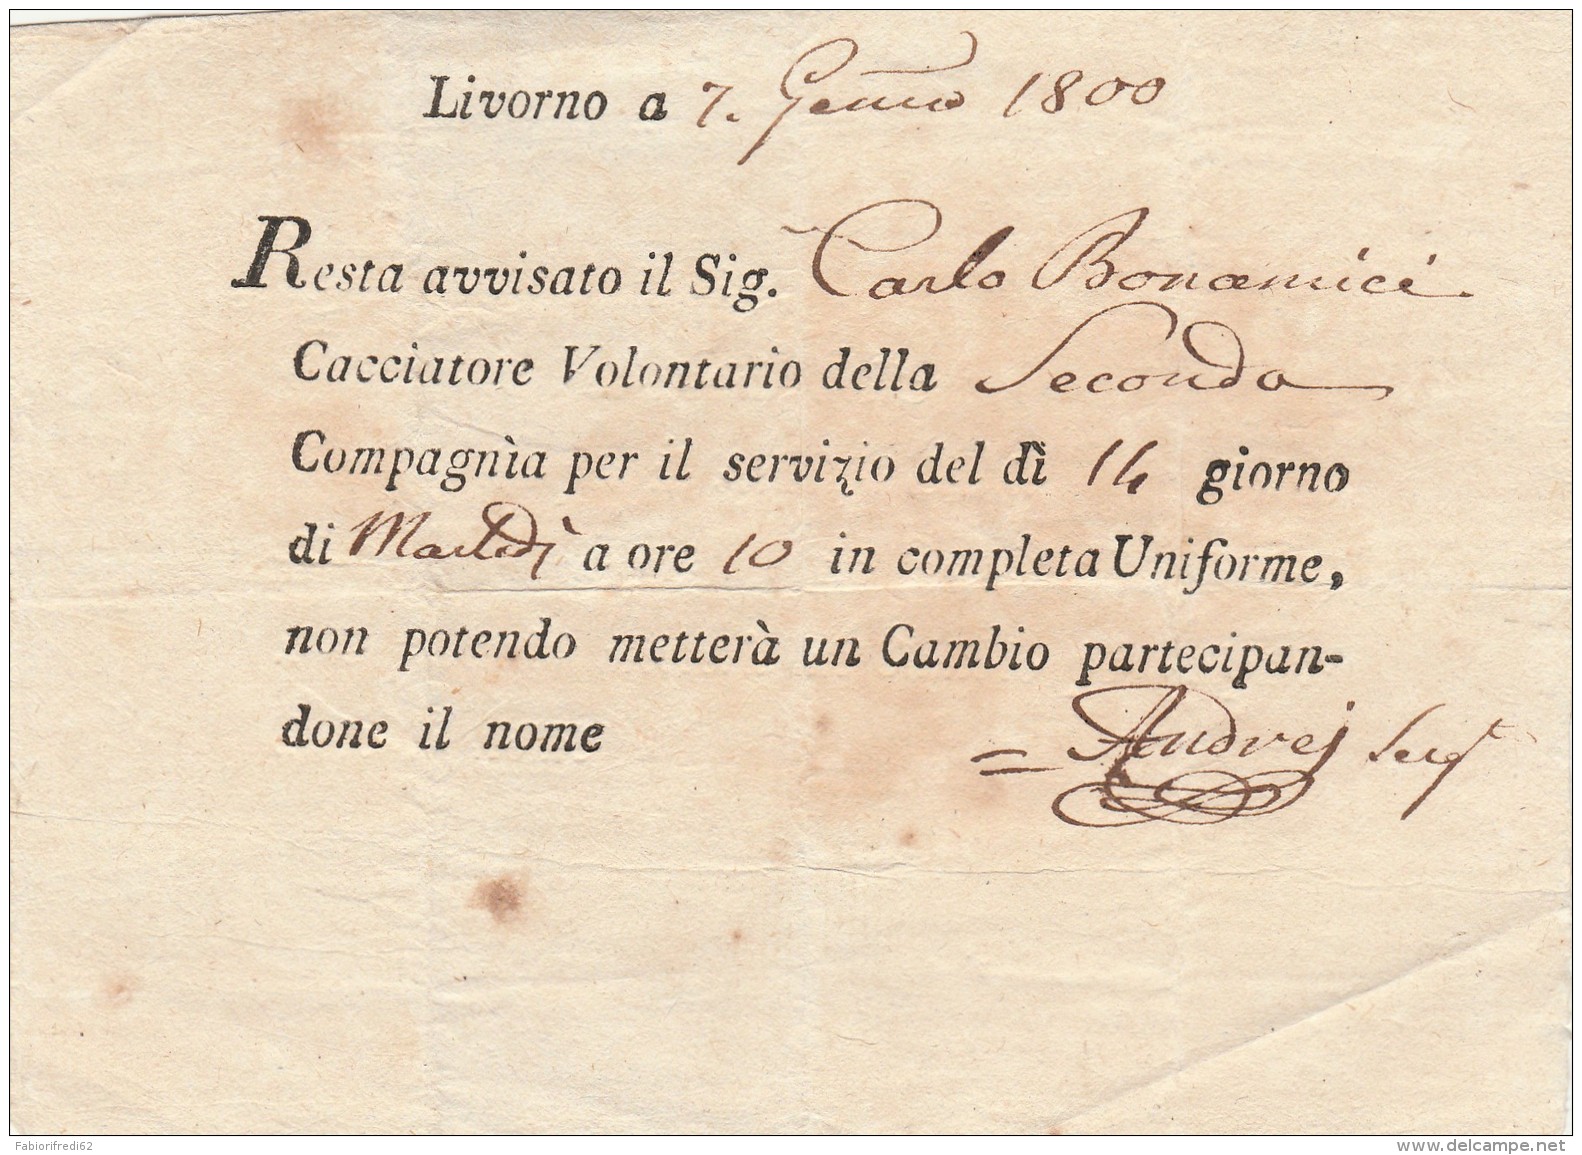 Livorno a 7. Genn.ro 1800
Resta avvisato il Sig. Carlo Bonamici
Cacciatore Volontario della Seconda
Compagnìa per il servizio del dì 14 giorno
di Martedì a ore 10 in completa Uniforme,
non potendo metterà un Cambio partecipan-
done il nome = Andrej Sergt
Fabiorifredi62
www.delcampe.net